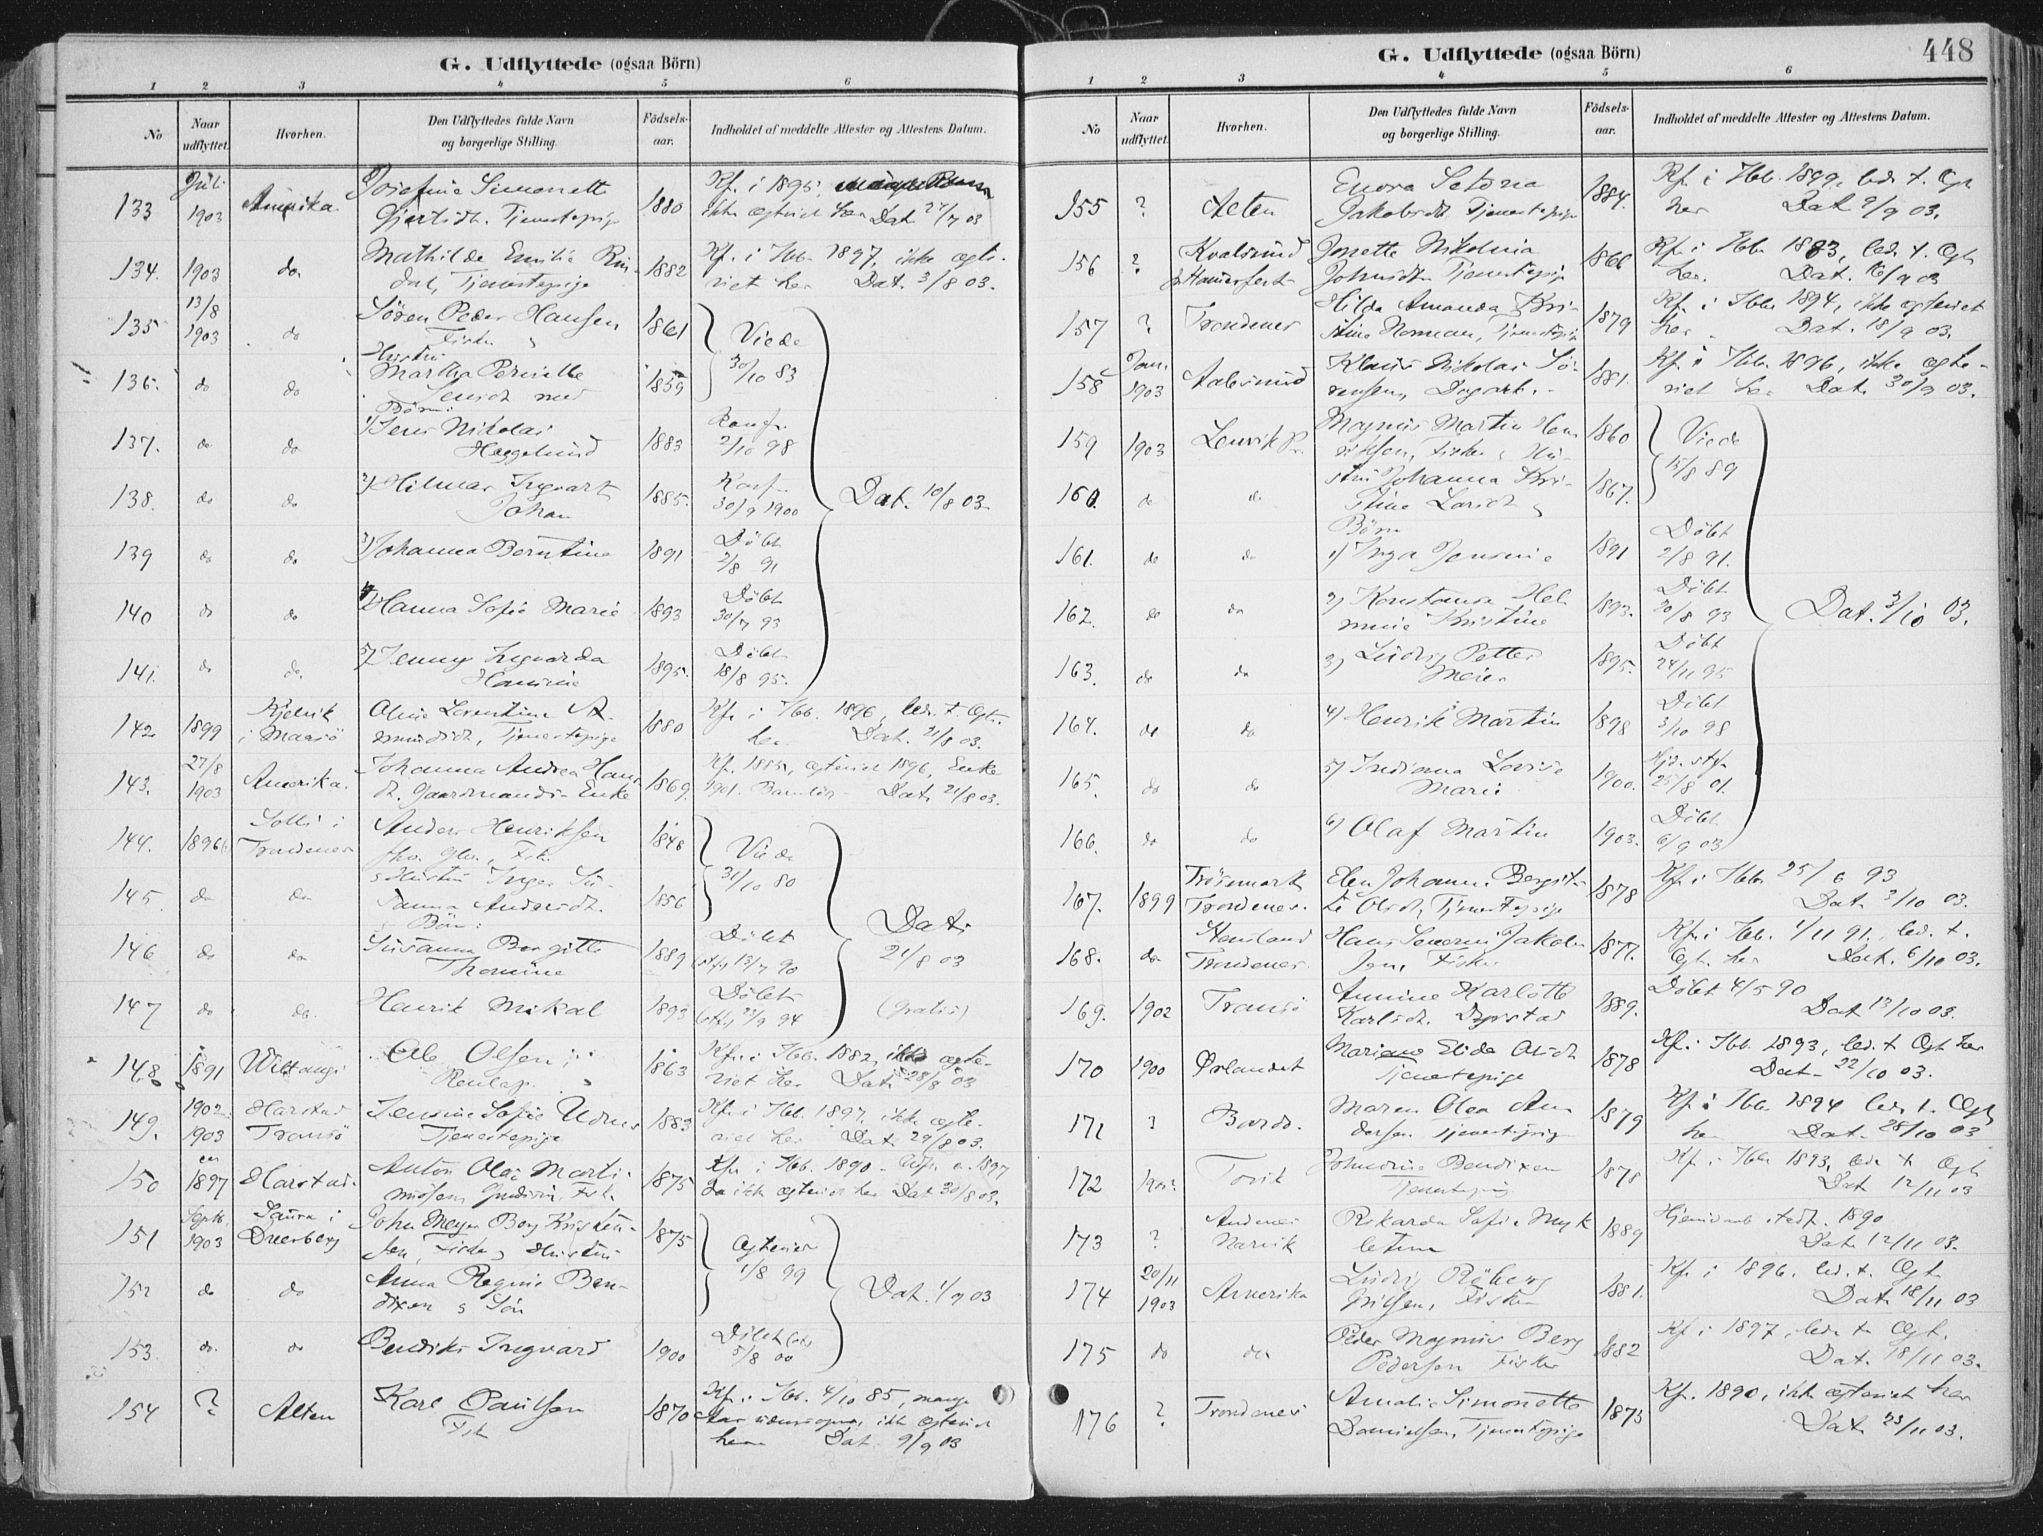 G. Udflyttede (ogsaa Börn)
1 2 3 4 5 6
No Naar udflyttet. Hvorhen. Den Udflyttedes fulde Navn og borgerlige Stilling. Födsels-aar. Indholdet af meddelte Attester og Attestens Datum.
133 Juli 1903 Amerika Josefine Simonette Gjertsdt. Tjenestepige 1880 Kf. i 1895, ikke egteviet her Dat. 27/7 03
134. 1903 do Mathilde Emilie Rindal, Tjenestepige 1882 Kf. i Hbb. 1897, ikke egteviet her Dat. 3/8 03.
135 13/8 1903 do Sören Peder Hansen Fisker, 1861 Viede 30/10 83
136. do do Hustru Martha Pernille Jensdt med 1859
Börn:
137. do do 1) Jens Nikolai Heggelund 1883 Konf. 2/10 98
138. do do 2) Hilmar Ingvart Johan 1885. Konf. 30/9 1900 Dat. 10/8 03.
139 do do 3) Johanna Berntine 1891 Döbt 2/8 91
140 do do 4) Hanna Sofie Marie 1893 Döbt 30/7 93
141. do do 5) Jenny Ingvarda Hansine 1895. Döbt 18/8 95.
142 1899 Kjelvik i Maasö Oline Lorentine Asmundsdt, Tjenestepige 1880 Kf. i Hbb. 1896, led. t. Egt. her Dat. 21/8 03.
143. 27/8 1903 Amerika. Johanna Andrea Hansdt. Gaardmands Enke 1869. Kf. 1885, egteviet 1896, Enke 1901. Barnlös Dat. 21/8 03.
144. 1896 Solli i Trondenes Anders Henriksen Fisk. 1846 Viede 31/10 80
145. do do Hustru Inger Susanna Andersdt. 1856
Börn:
146 do do Susanna Bergitte Thomine 1889 Döbt 13/7 90 Dat. 21/8 03
147 do do. Henrik Mikal 1893 Döbt 23/9 94 (gratis)
148 1891 Wittangi Ole Olsen Renlap. 1863 Kf. i Hbb. 1882, ikke egteviet her Dat. 28/8 03
149. 1902 1903 Harstad Tromsö Jensine Sofie Udnes Tjenestepige 1883 Kf. i Hbb. 1897, ikke egteviet her Dat. 29/8 03.
150 1897 Harstad. Anton Olai Martinusen, Fisk. 1875 Kf. i Hbb. 1890 1897 da ikke egteviet her Dat. 30/8 03.
151 Septb. 1903 Saura i Dverberg John Meyer Berg Kristensen, Fisker, Hustru 1875 Egteviet 1/8 99
152 do do Anna Regine Bendixen & Sön Dat. 1/9 03
153. do. do Bendiks Ingvard 1900 Döbt 5/8 00
154 ? Alten Karl Paulsen Fisk 1870 Kf. i Hbb. 4/10 85, ikke egteviet her Dat. 9/9 03
448
G. Udflyttede (ogsaa Börn)
1 2 3 4 5 6
No Naar udflyttet. Hvorhen. Den Udflyttedes fulde Navn og borgerlige Stilling. Födsels-aar. Indholdet af meddelte Attester og Attestens Datum.
155 ? Alten Enora Setoria Jakobsdt Tjenestepige 1884. Kf. i Hbb. 1899, led. t. Egt her Dat. 9/9 03.
156 ? Kvalsund p. Hammerfest Jonette Nikolina Johnsdt. Tjenestepige 1866 Kf. i Hbb. 1883, led. t. Egt her. Dat. 16/9 03
157 ? Trondenes Hilda Amanda Kristine Norman, Tjenestepige 1879 Kf. i Hbb. 1894, ikke egteviet her Dat. 18/9 03.
158 Jan. 1903 Aalesund Klaus Nikolai Sörensen, Dagarb. 1881. Kf. i Hbb. 1896, ikke egteviet her Dat. 30/9 03.
159 1903 Lenvik P. Magnus Martin Henriksen, Fisker, Hu- 1860 Viede 15/8 89
160. do do stru Johanna Kristine Larsdt & 1867.
Börn
161. do do 1) Inga Jensine 1891 Döbt 2/8 91.
162. do do 2) Konstanse Helmine Kristine 1893. Döbt 20/8 93 Dat. 3/10 03.
163. do do 3) Ludvig Petter Meier 1895. Döbt 24/11 95
164. do do 4) Henrik Martin 1898 Döbt 3/10 98
165. do do 5) Indiana Lovise Marie 1900. Hjd. stf. 25/8 01.
166. do do 6) Olaf Martin 1903. Döbt 6/9 03
167. 1899 Trondenes. Elen Johanne Bergitte Olsdt, Tjenestepige 1878 Kf. i Hbb. 25/6 93 Dat. 3/10 03.
168. do Trondenes Hans Severin Jakobsen, Fisker 1877. Kf. i Hbb. 1/11 91, led. t. Egt. her Dat. 6/10 03.
169. 1902 Tromsö Annine Karlotte Karlsdt. 1889. Döbt 4/5 90 Dat 13/10 03.
170 1900 Ørlandet Mariane Elida Olsdt Tjenestepige 1878 Kf. i Hbb. 1893, led. t Egt her Dat. 22/10 03.
171 ? Bardo. Maren Olea Andersen Tjenestepige 1879 Kf. i Hbb. 1894 led. t. Egt her Dat. 28/10 03
172 Tovik Johnsine Bendixen Tjenestepige 1878 Kf. i Hbb. 1893, led. t Egt Dat 12/11 03
173 ? Andenes Narvik Rikarda Sofie Mykletun 1889 Hjemedøb stadf. 1890 Dat. 12/11 03.
174 20/11 1903 Amerika Ludvig Röberg Nilsen, Fisker 1881. Kf. i 1896. led. t. Egt. Dat. 18/11 03
175 do do Peder Magnus Berg Pedersen Fisker 1882 Kf. i 1897, led. t. Egt. Dat. 18/11 03.
176 ? Trondenes Amalie Simonette Danielsen, Tjenestepige 1875 Kf. 1890, ikke egteviet her Dat. 23/11 03.